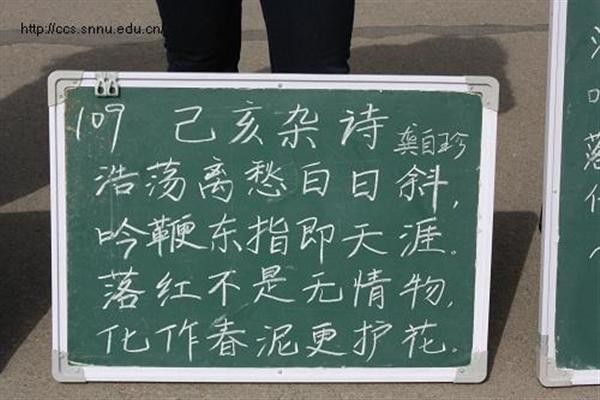 http://ccs.snnu.edu.cn/
109 己亥杂诗 龚自珍
浩荡离愁白日斜,
吟鞭东指即天涯。
落红不是无情物,
化作春泥更护花。